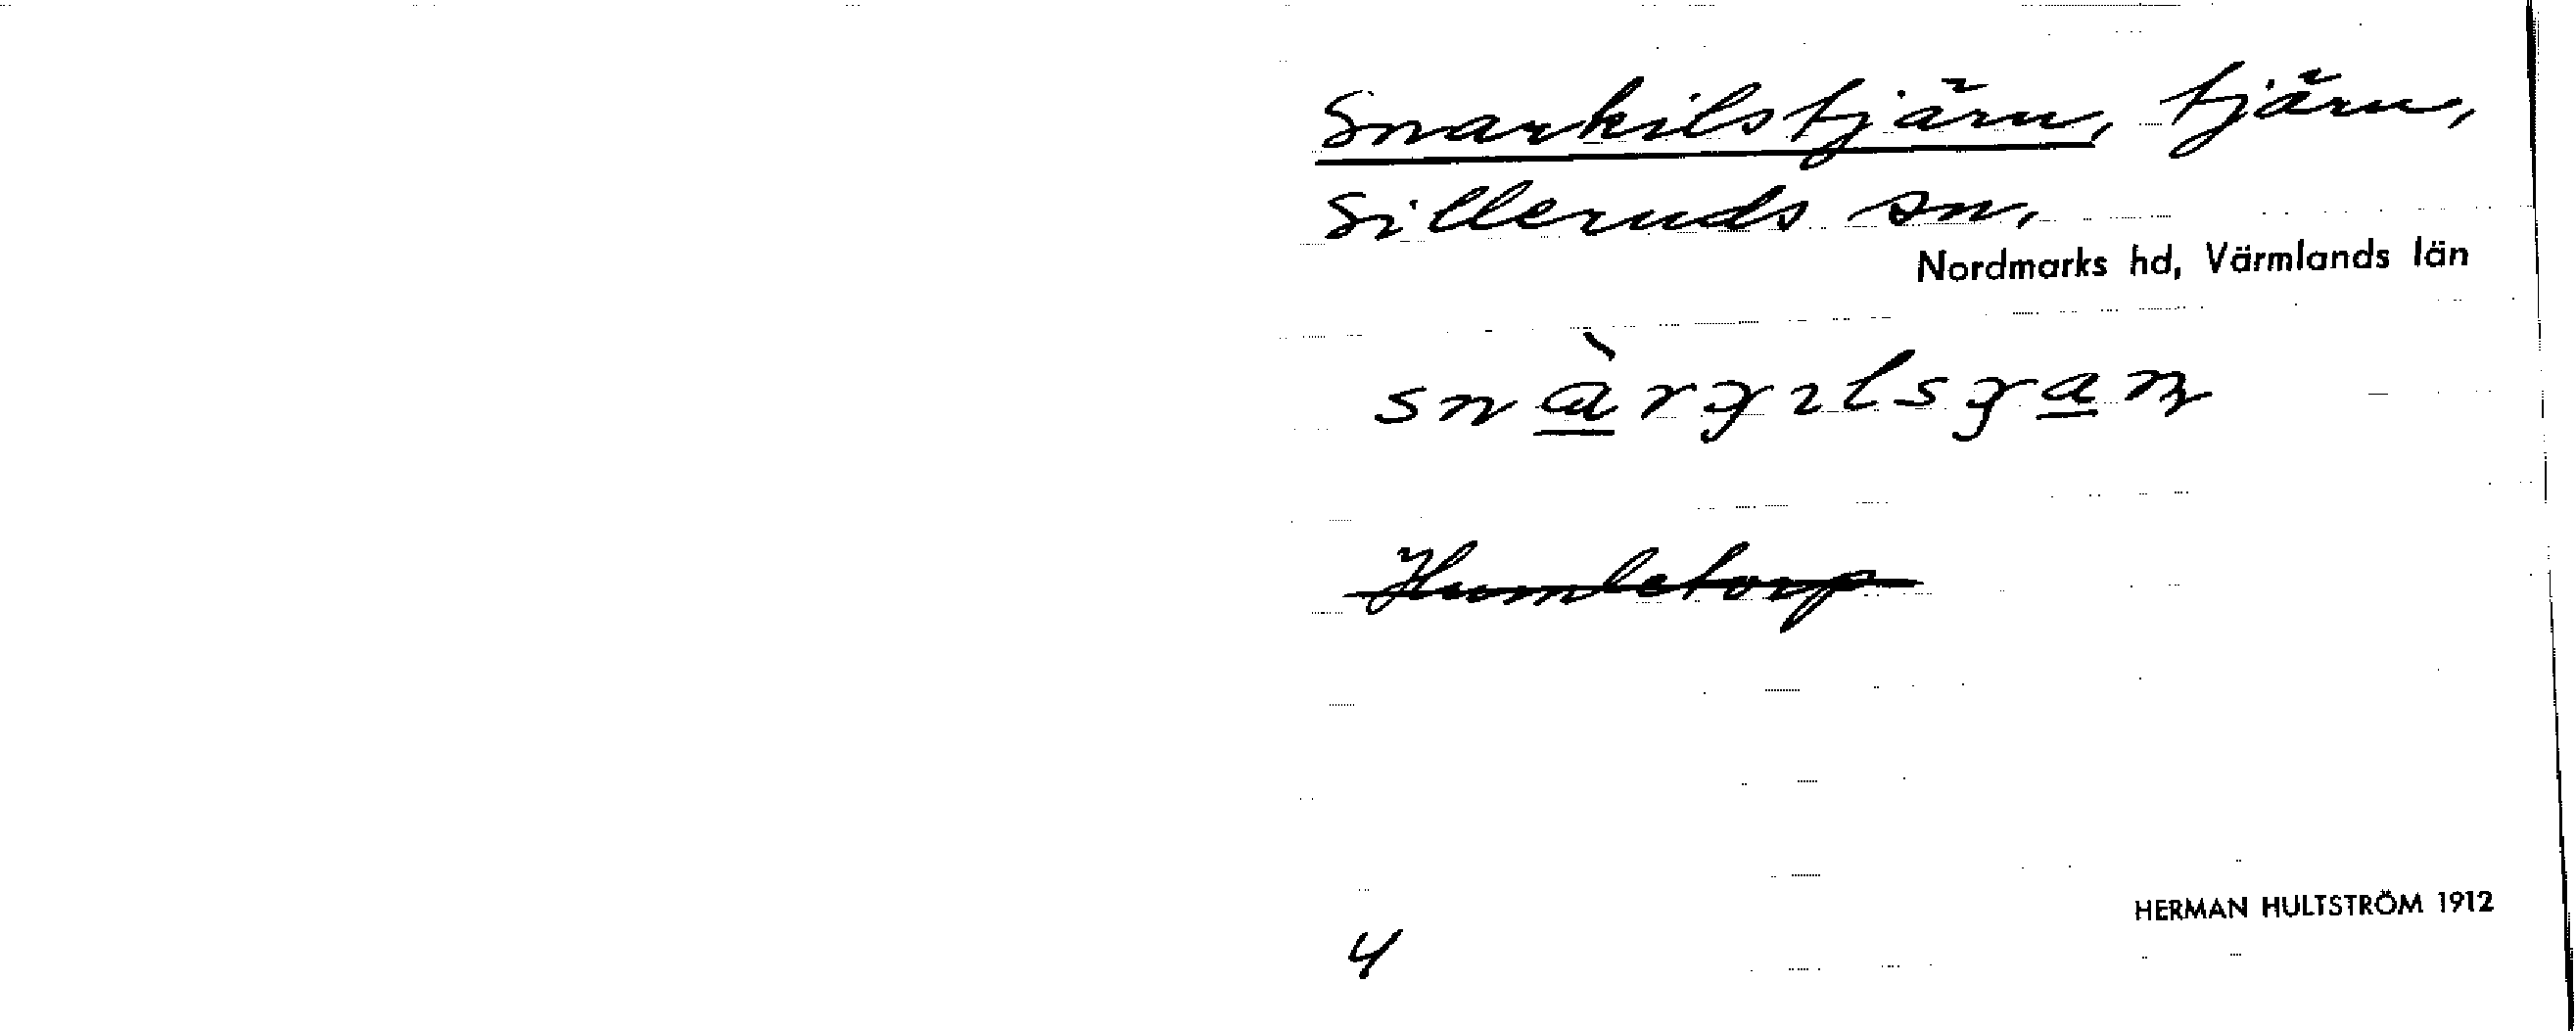 Snarkilstjärn, tjärn,
Silleruds sn,
Nordmarks hd, Värmlands län
Humletorp
HERMAN HULTSTRÖM 1912
4